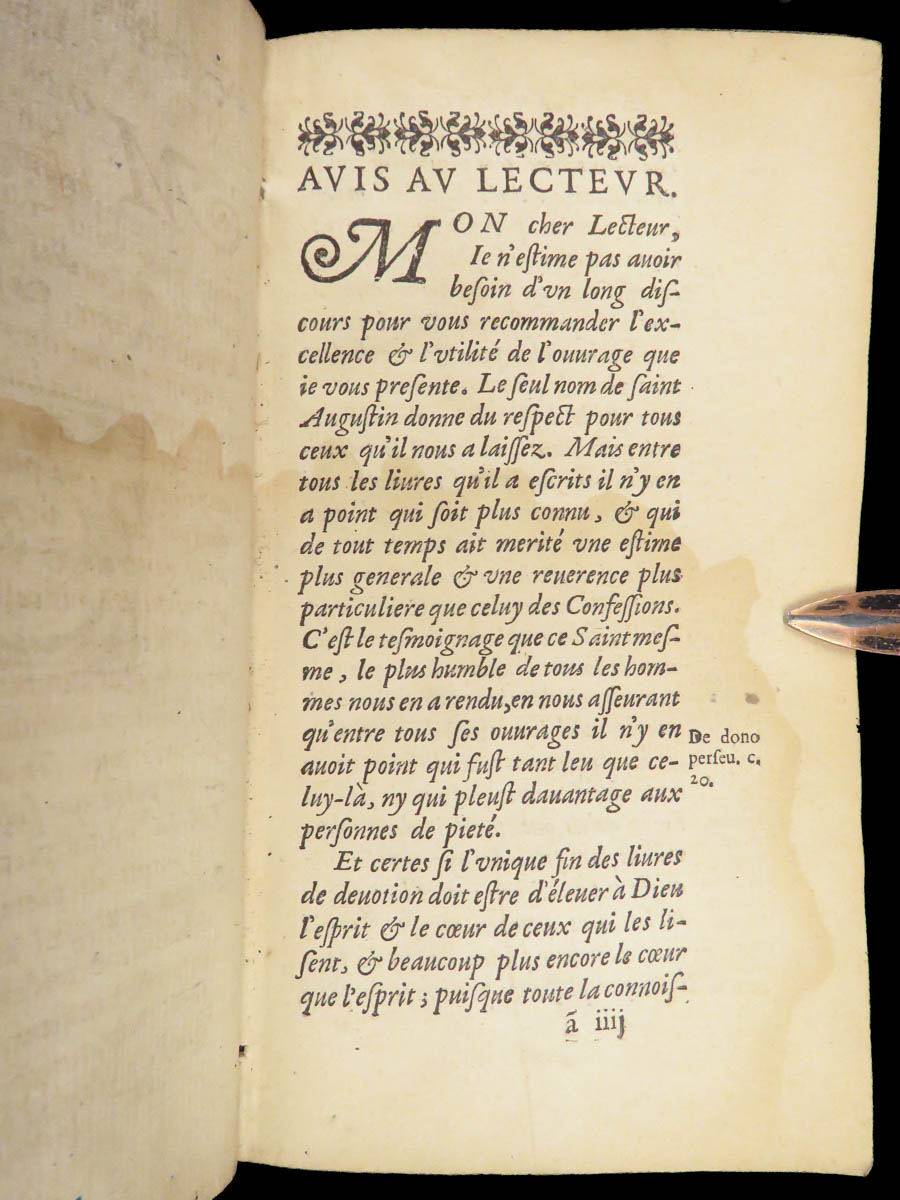 AVIS AV LECTEVR.
MON cher Lecteur,
Ie n'eſtime pas auoir
beſoin d'vn long diſ-
cours pour vous recommander l'ex-
cellence & l'vtilité de l'ouurage que
ie vous preſente. Le ſeul nom de ſaint
Auguſtin donne du reſpect pour tous
ceux qu'il nous a laiſſez. Mais entre
tous les liures qu'il a eſcrits il n'y en
a point qui ſoit plus connu, & qui
de tout temps ait merité vne eſtime
plus generale & vne reuerence plus
particuliere que celuy des Confeſſions.
C'eſt le teſmoignage que ce Saint meſ-
me, le plus humble de tous les hom-
mes nous en a rendu, en nous aſſeurant
qu'entre tous ſes ouurages il n'y en
auoit point qui fuſt tant leu que ce-
luy-là, ny qui pleuſt dauantage aux
perſonnes de pieté.
De dono
perſeu. c.
20.
Et certes ſi l'vnique fin des liures
de deuotion doit eſtre d'éleuer à Dieu
l'eſprit & le cœur de ceux qui les li-
ſent, & beaucoup plus encore le cœur
que l'eſprit; puiſque toute la connoiſ-
ã iiij